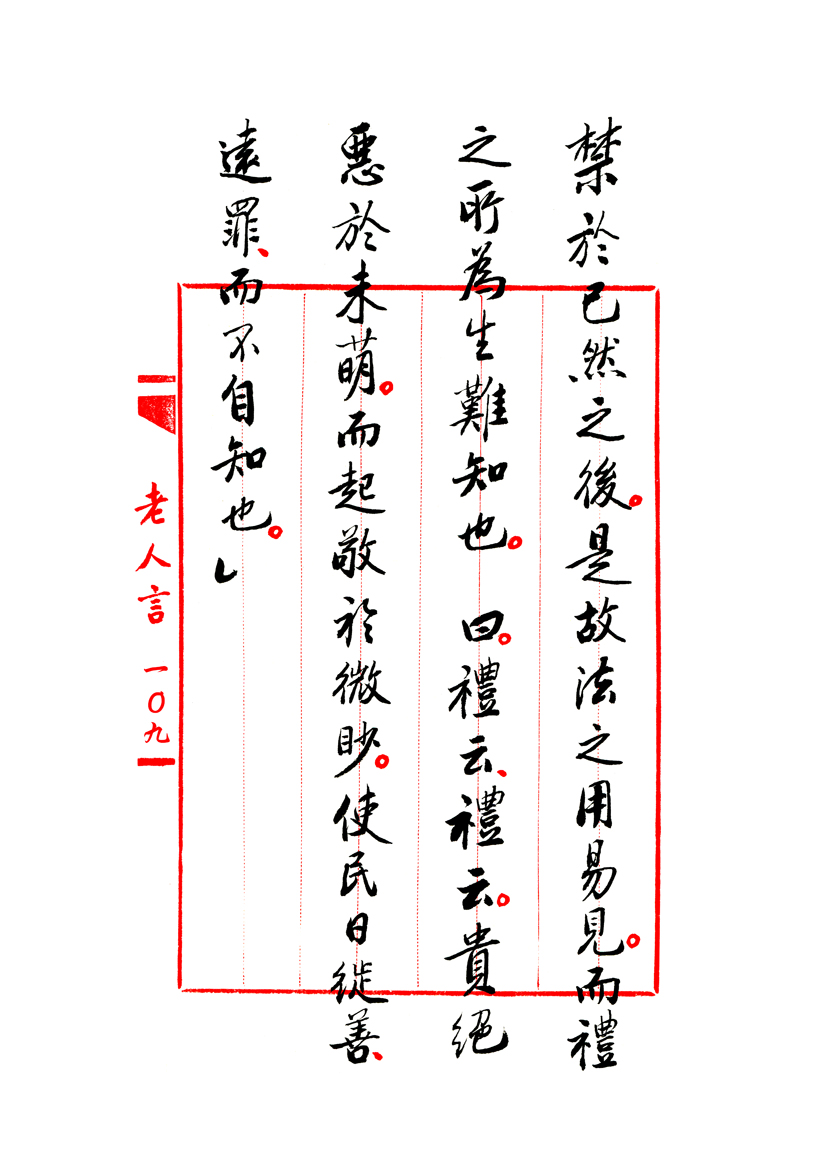 禁於已然之後。是故法之用易見。而禮
之所為生難知也。　曰。禮云、禮云。貴絕
惡於未萌。而起敬於微眇。使民日徙善、
遠罪、而不自知也。」
老人言 一〇九